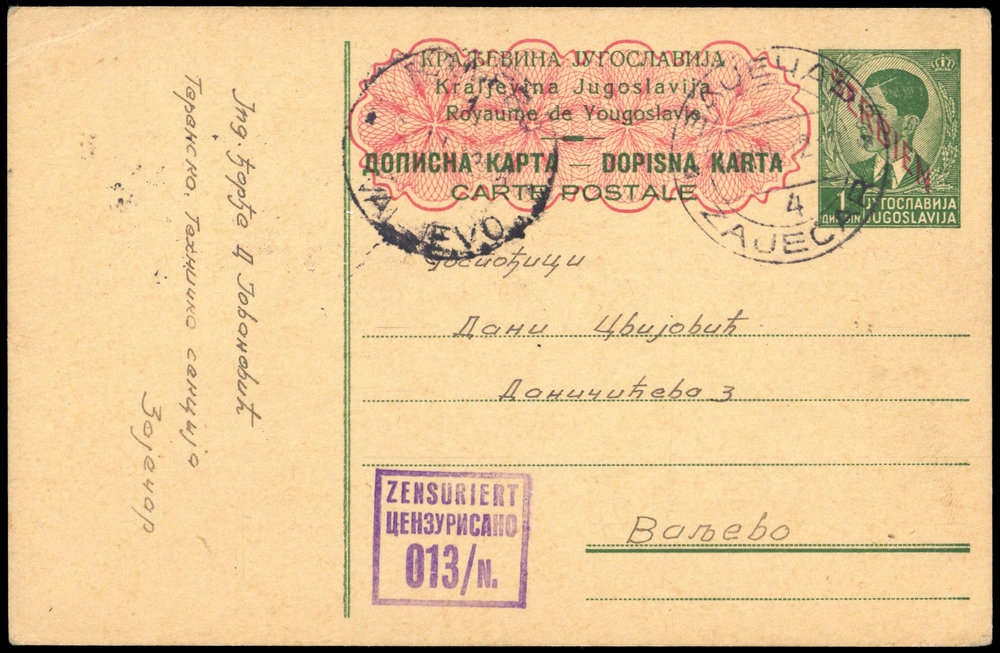 КРАЉЕВИНА ЈУГОСЛАВИЈА
Kraljevina Jugoslavija
Royaume de Yougoslavie
ДОПИСНА КАРТА — DOPISNA KARTA
CARTE POSTALE
VALJEVO
ЗАЈЕЧАР
4
ZAJEČAR
SERBIEN
1
ЈУГОСЛАВИЈА
ДИН DIN JUGOSLAVIJA
Госпођици
Дани Цвијовић
Даничићева 3
Ваљево
ZENSURIERT
ЦЕНЗУРИСАНО
013/N.
Инд. Ђорђе Д Јовановић
Теренска Техничка секција
Зајечар